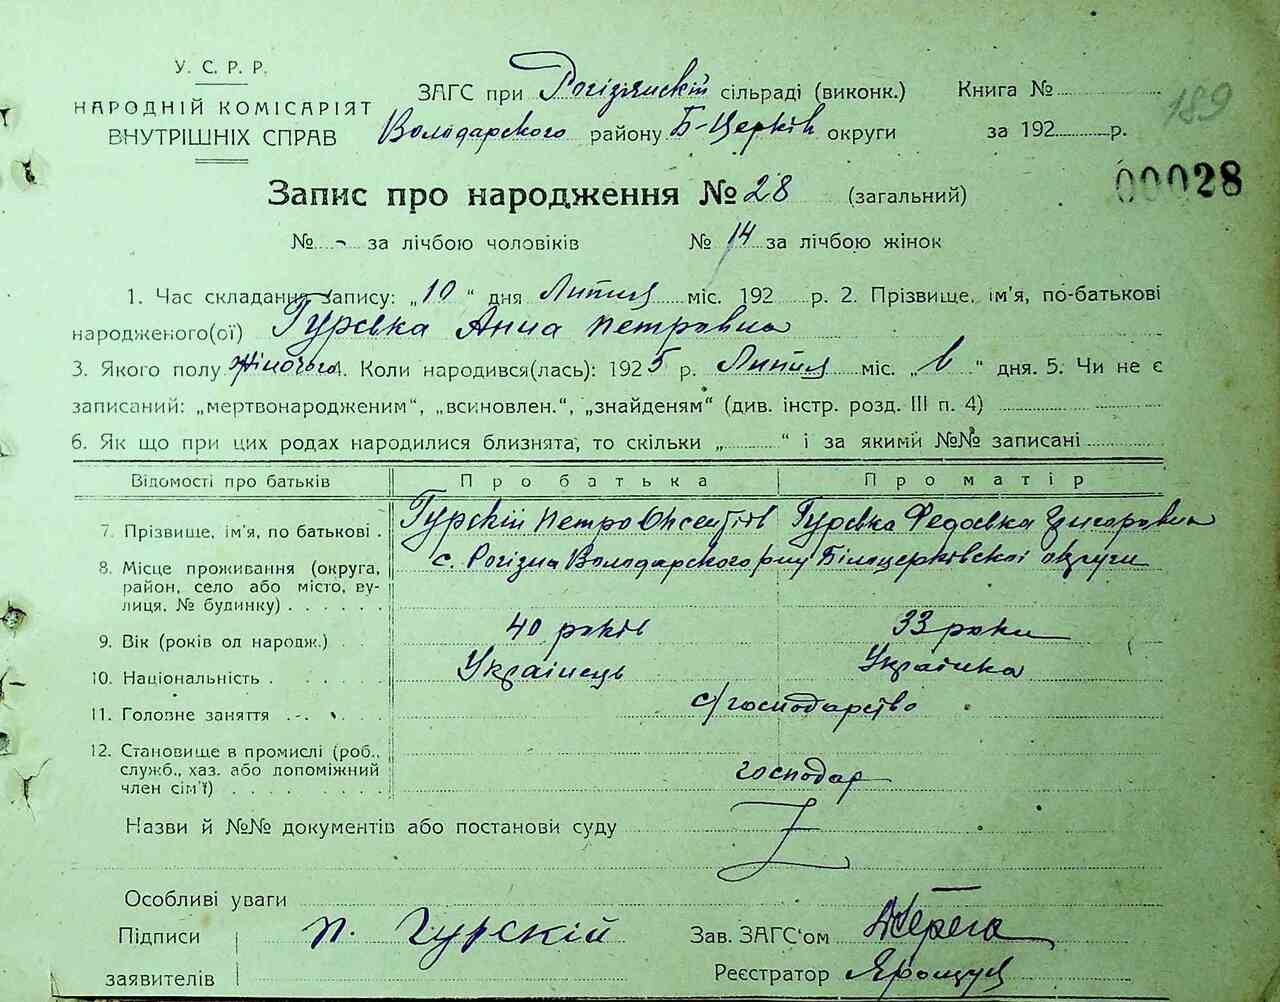 У. С. Р. Р.
НАРОДНІЙ КОМІСАРІЯТ
ВНУТРІШНІХ СПРАВ
ЗАГС при Рогізянскій сільраді (виконк.) Книга №
189
Володарского району Б-Церків округи за 192 р.
Запис про народження № 28 (загальний)
00028
№ - за лічбою чоловіків № 14 за лічбою жінок
1. Час складання запису: „10“ дня Липня міс. 192 р. 2. Прізвище, ім'я, по-батькові
народженого(ої) Гурська Анна Петровна
3. Якого полу жіночого. Коли народився(лась): 1925 р. Липня міс. „6“ дня. 5. Чи не є
записаний: „мертвонародженим“, „всиновлен.“, „знайденям“ (див. інстр. розд. III п. 4)
6. Як що при цих родах народилися близнята, то скільки „ “ і за якими №№ записані
Відомості про батьків Про батька Про матір
7. Прізвище, ім'я, по батькові . Гурскій Петро Гурська Федоська Григоровна
8. Місце проживання (округа, район, село або місто, ву-
лиця, № будинку) . . . . . . с. Рогізна Володарского р-ну Білоцерківскої округи
9. Вік (років од народж.) . . 40 років 33 роки
10. Національність . . . . . . Українець Українка
11. Головне заняття . . . . . с/господарство
12. Становище в промислі (роб.,
служб., хаз. або допоміжний
член сім'ї) . . . . . . . . господар
Назви й №№ документів або постанови суду
Особливі уваги
Підписи
заявителів
П. Гурскій
Зав. ЗАГС'ом
Реєстратор